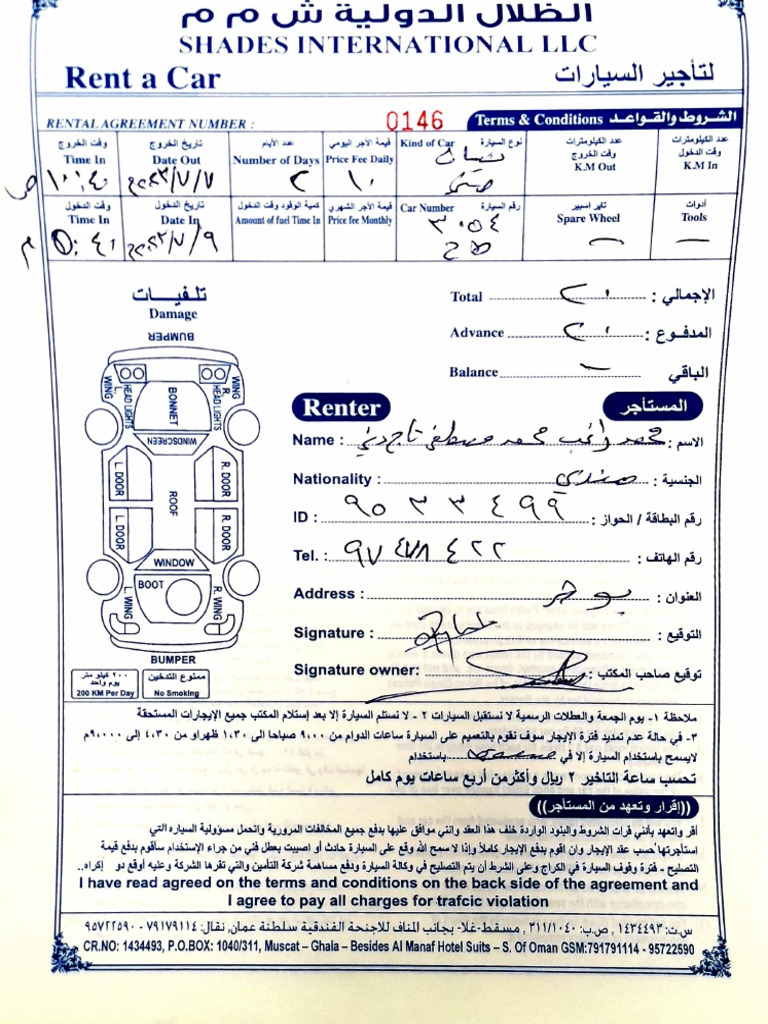 الظلال الدولية ش م م
SHADES INTERNATIONAL LLC
Rent a Car لتأجير السيارات
RENTAL AGREEMENT NUMBER : 0146 Terms & Conditions الشروط والقواعد
وقت الخروج تاريخ الخروج عدد الأيام قيمة الأجر اليومي Kind of Car نوع السيارة عدد الكيلومترات وقت الخروج عدد الكيلومترات وقت الدخول
Time In Date Out Number of Days Price Fee Daily نيسان K.M Out K.M In
ص ١٠:٤٠ ٢٠٢٣/٧/٧ ٢ ١٠
وقت الدخول تاريخ الدخول كمية الوقود وقت الدخول قيمة الأجر الشهري Car Number رقم السيارة تاير اسبير أدوات
Time In Date In Amount of fuel Time In Price fee Monthly ٣٠٥٤ Spare Wheel Tools
م ٥:٤١ ٢٠٢٣/٧/٩ — —
تلفيات
Damage
Total ٢٠ الإجمالي :
Advance ٢٠ المدفوع :
Balance - الباقي
BUMPER
WING L. HEAD LIGHTS BONNET R. HEAD LIGHTS WING
WINDSCREEN
L. DOOR ROOF R. DOOR
L. DOOR R. DOOR
WINDOW
BOOT
L. WING R. WING
BUMPER
٢٠٠ كيلو متر يوم واحد
200 KM Per Day
ممنوع التدخين
No Smoking
Renter المستأجر
Name : محمد راغب محمد مصطفى تاج دين الاسم :
Nationality : هندي الجنسية :
ID : ٩٥٣٣٤٩٩ رقم البطاقة / الجواز :
Tel. : ٩٧٤٧٨٤٢٢ رقم الهاتف :
Address : بوشر العنوان :
Signature : التوقيع :
Signature owner: توقيع صاحب المكتب :
ملاحظة ١- يوم الجمعة والعطلات الرسمية لا نستقبل السيارات ٢- لا نستلم السيارة إلا بعد إستلام المكتب جميع الإيجارات المستحقة
٣- في حالة عدم تمديد فترة الإيجار سوف نقوم بالتعميم على السيارة ساعات الدوام من ٩:٠٠ صباحا الى ١،٣٠ ظهراو من ٤،٣٠ إلى ٩:٠٠٠م
لايسمح باستخدام السيارة إلا في باستخدام
تحسب ساعة التاخير ٢ ريال وأكثر من أربع ساعات يوم كامل
((إقرار وتعهد من المستأجر))
أقر واتعهد بأنني قرات الشروط والبنود الواردة خلف هذا العقد وانني موافق عليها بدفع جميع المخالفات المرورية واتحمل مسؤولية السياره التي
استأجرتها حسب عقد الإيجار وان اقوم بدفع الإيجار كاملاً وإذا لا سمح الله وقع على السيارة حادث أو اصيبت بعطل فني من جراء الإستخدام سأقوم بدفع قيمة
التصليح - فترة وقوف السيارة في الكراج وعلى الشرط أن يتم التصليح في وكالة السيارة ودفع مساهمة شركة التأمين والتي تقرها الشركة وعليه أوقع دو إكراه..
I have read agreed on the terms and conditions on the back side of the agreement and
I agree to pay all charges for trafcic violation
س.ت: ١٤٣٤٤٩٣، ص.ب: ٣١١/١٠٤٠، مسقط-غلا- بجانب المناف للاجنحة الفندقية سلطنة عمان, نقال: ٧٩١٧٩١١٤ - ٩٥٧٢٢٥٩٠
CR.NO: 1434493, P.O.BOX: 1040/311, Muscat – Ghala – Besides Al Manaf Hotel Suits – S. Of Oman GSM:791791114 - 95722590